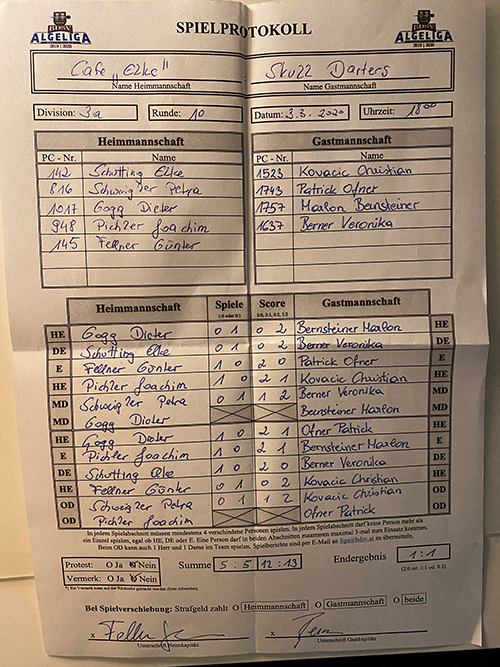 BDSV
ALGELIGA
2019 | 2020
SPIELPROTOKOLL
BDSV
ALGELIGA
2019 | 2020
Cafe „Elke" Skuzz Darters
Name Heimmannschaft Name Gastmannschaft
Division: 3a Runde: 10 Datum: 3.3.2020 Uhrzeit: 18 00
Heimmannschaft Gastmannschaft
PC - Nr. Name PC - Nr. Name
142 Schutting Elke 1523 Kovacic Christian
816 Schweig'ler Petra 1743 Patrick Ofner
1017 Gogg Dieter 1757 Marlon Bernsteiner
948 Pichler Joachim 1637 Berner Veronika
145 Fellner Günter
Heimmannschaft Spiele Score Gastmannschaft
1:0 oder 0:1 2:0, 2:1, 0:2, 1:2
HE Gogg Dieter 0 1 0 2 Bernsteiner Marlon HE
DE Schutting Elke 0 1 0 2 Berner Veronika DE
E Fellner Günter 1 0 2 0 Patrick Ofner E
HE Pichler Joachim 1 0 2 1 Kovacic Christian HE
MD Schweig'ler Petra 0 1 1 2 Berner Veronika MD
MD Gogg Dieter Bernsteiner Marlon MD
HE Gogg Dieter 1 0 2 1 Ofner Patrick HE
E Pichler Joachim 1 0 2 1 Bernsteiner Marlon E
DE Schutting Elke 1 0 2 0 Berner Veronika DE
HE Fellner Günter 0 1 0 2 Kovacic Christian HE
OD Schweig'ler Petra 0 1 1 2 Kovacic Christian OD
OD Pichler Joachim Ofner Patrick OD
In jedem Spielabschnitt müssen mindestens 4 verschiedene Personen spielen. In jedem Spielabschnitt darf keine Person mehr als
ein Einzel spielen, egal ob HE, DE oder E. Eine Person darf in beiden Abschnitten zusammen maximal 3-mal zum Einsatz kommen.
Beim OD kann auch 1 Herr und 1 Dame im Team spielen. Spielberichte sind per E-Mail an liga@bdsv.at zu übermitteln.
Protest: O Ja O Nein Summe 5 : 5 12 : 13 Endergebnis 1:1
Vermerk: O Ja O Nein (2:0 od. 1:1 od. 0:2)
*) Ein Vermerk kann auf der Rückseite gemacht werden
Bei Spielverschiebung: Strafgeld zahlt O Heimmannschaft O Gastmannschaft O beide
x x
Unterschrift Heimkapitän Unterschrift Gastkapitän